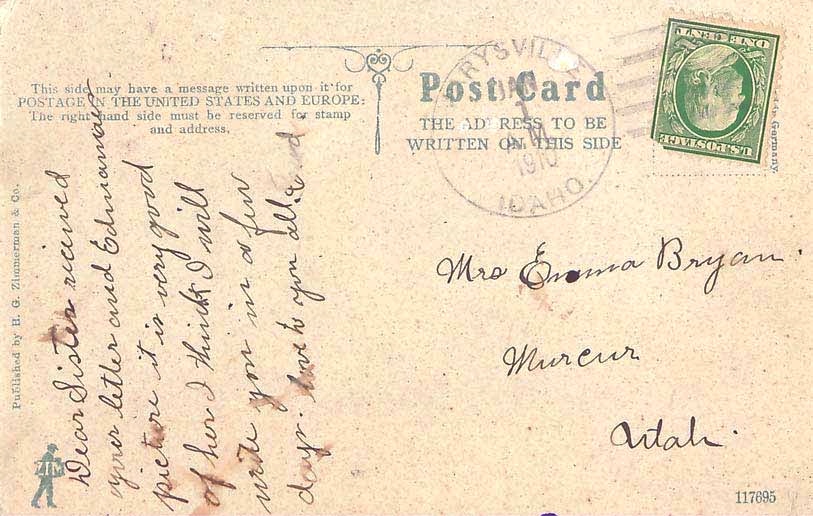 This side may have a message written upon it for
POSTAGE IN THE UNITED STATES AND EUROPE:
The right hand side must be reserved for stamp
and address.
Post Card
THE ADDRESS TO BE
WRITTEN ON THIS SIDE
RYSVILLE
1910
IDAHO.
ONE CENT
U.S. POSTAGE
in Germany.
Published by H. G. Zimmerman & Co.
Dear Sister recieved
your letter and Edmanaes
picture it is very good
of her I think I will
write you in a few
days. love to you all
Mrs Emma Bryan
Mercur
Utah.
ZIM
117695